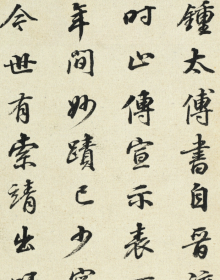 鍾太傅書自晉
時止傳宣示表
年間妙蹟已少
今世有索靖出